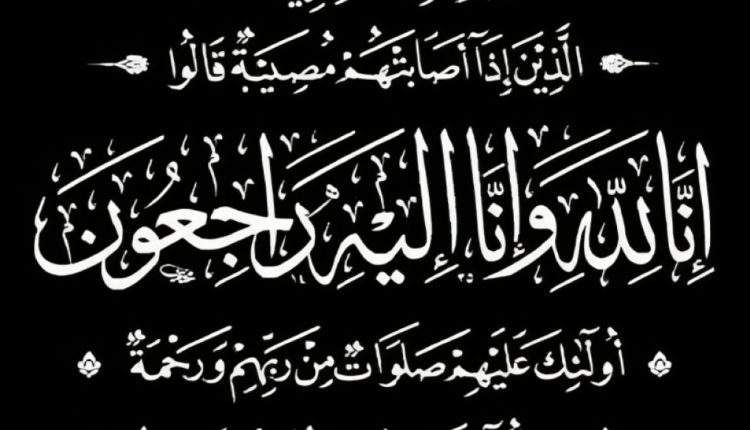 الَّذِيْنَ إِذَآ أَصَابَتْهُمْ مُصِيْبَةٌ قَالُوا
إِنَّا لِلّٰهِ وَإِنَّا إِلَيْهِ رَاجِعُونَ
أُولَٰٓئِكَ عَلَيْهِمْ صَلَوَاتٌ مِنْ رَبِّهِمْ وَرَحْمَةٌ